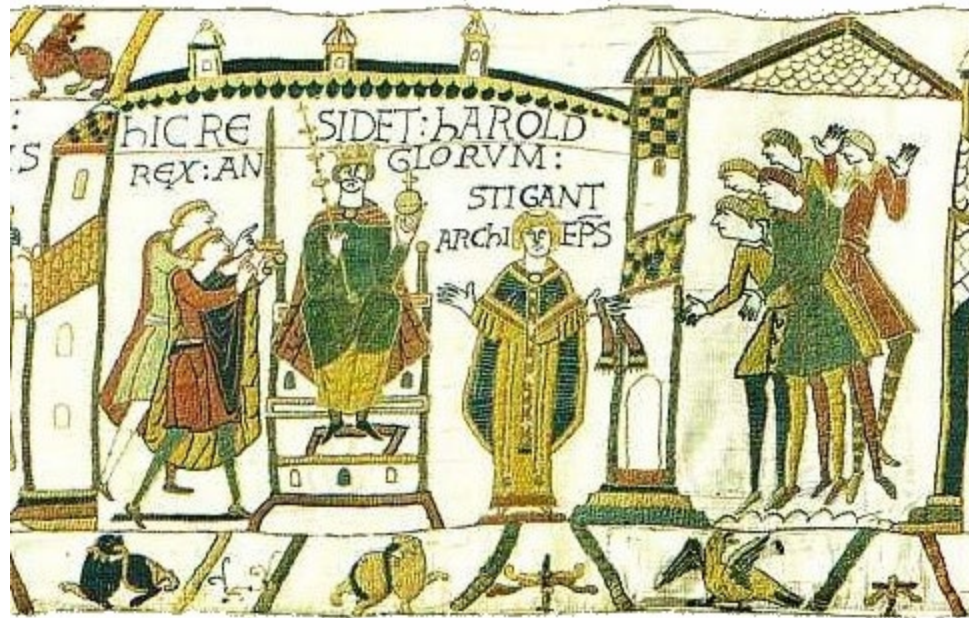 IS
hIC RE SIDET: hAROLD
REX: AN GLORVM:
STIGANT
ARChI EP̅S